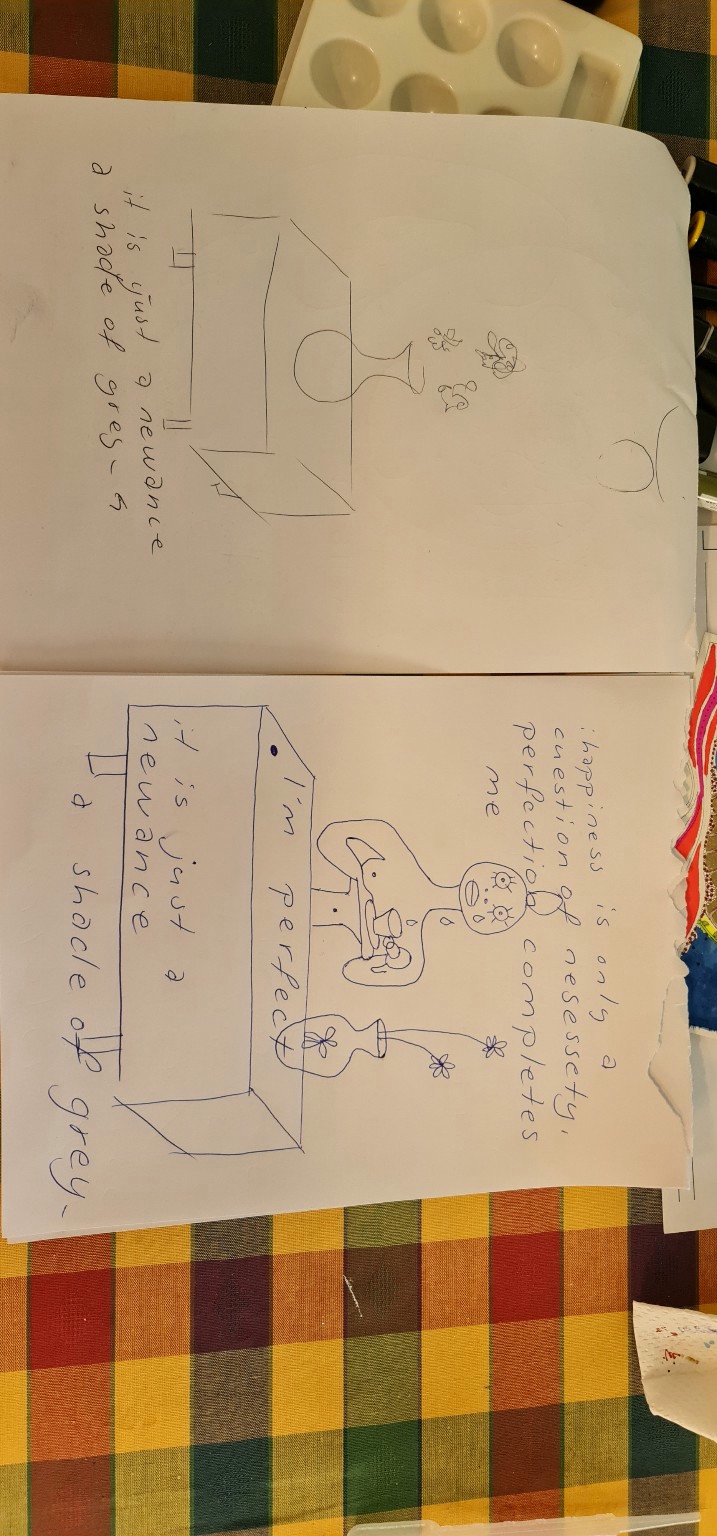 it is just a newance
a shade of grey-
happiness is only a
cuestion of nesessety,
perfection completes
me
I'm perfect
it is just a
newance
a shade of grey-